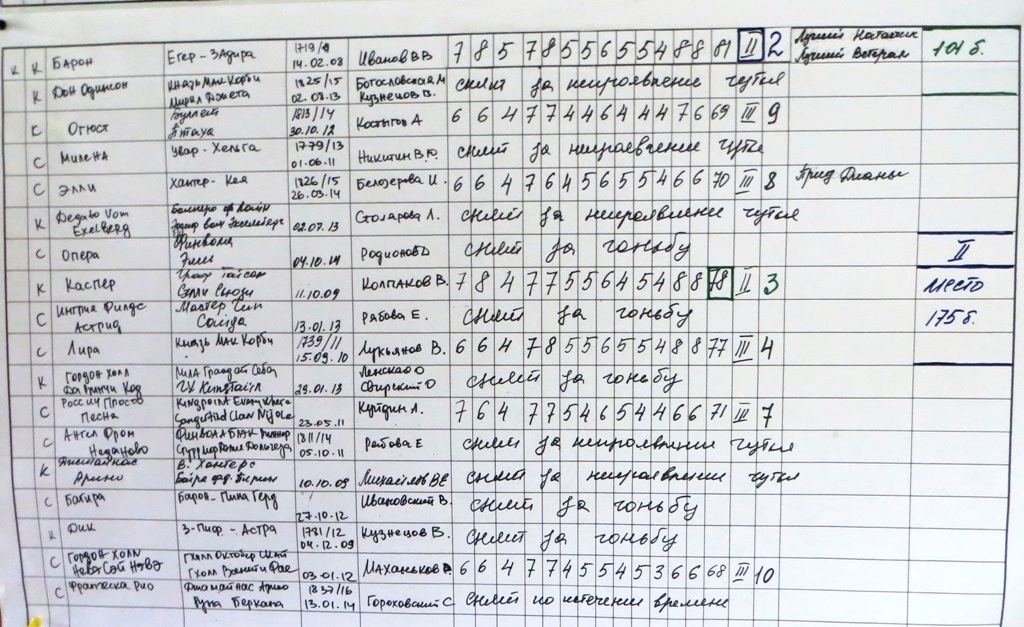 К К Барон Егер - Задира 1719/9 14.02.08 Иванов ВВ 7 8 5 7 8 5 5 6 5 5 4 8 8 81 II 2 Лучший Натасчик Лучший Ветеран 101 б.
К Дон Одинсон Князь Мак Корби Мирал Джета 1825/15 02.08.13 Богословская М Кузнецов В. снят за непроявление чутья
С Огюст Буллет Птаха 1813/14 30.10.12 Костыгов А 6 6 4 7 7 4 4 6 4 4 4 7 6 69 III 9
С Милена Увар - Хельга 1779/13 01.06.11 Никитин В.Ю. снят за непроявление чутья
С Элли Хантер - Кея 1826/15 26.03.14 Белозерова И. 6 6 4 7 6 4 5 6 5 5 4 6 6 70 III 8 Приз Дианы
К Дедаво Vom Exelberg 02.07.13 Столарова Л. снят за непроявление чутья
С Опера Финвола Эмми 04.10.14 Родионов D снят за гоньбу II
К Каспер Грауф Тайсон Сэлли Сьюзи 11.10.09 Колпаков В. 7 8 4 7 7 5 5 6 4 5 4 8 8 78 II 3 место
С Ингрид Филдс Астрид Мастер Чип Саида 13.01.13 Рябова Е. снят за гоньбу 175 б.
С Лира Князь Мак Корби 1739/11 15.09.10 Лукьянов В. 6 6 4 7 8 5 5 6 5 5 4 8 8 77 III 4
К Гордон Холл Да Винчи Код Мила Грандай Сева ГХ Кингтаил 29.01.13 Ленская О Свирский О снят за гоньбу
С России Простор Песня 23.05.11 Куйдин Л. 7 6 4 7 7 5 4 6 5 4 4 6 6 71 III 7
С Ангел Фрон Неданово 1811/14 05.10.11 Рябова Е снят за непроявление чутья
К Арино В. Хантерс 10.10.09 Михайлов ВЕ снят за непроявление чутья
С Багира Барон - Пина Герд 27.10.12 Ивановский В. снят за гоньбу
К Фик З-Пиф - Астра 1781/12 04.12.09 Кузнецов В. снят за гоньбу
С Гордон Холл Нева Сэй Невэ ГХолл Октобер Скай ГХолл Вэнити Фае 03.01.12 Маханьков 6 6 4 7 7 4 5 5 4 5 3 6 6 68 III 10
С Франческа Рио Диамайнас Арино Руна Беркана 1837/16 13.01.14 Гороховский С снят по истечении времени